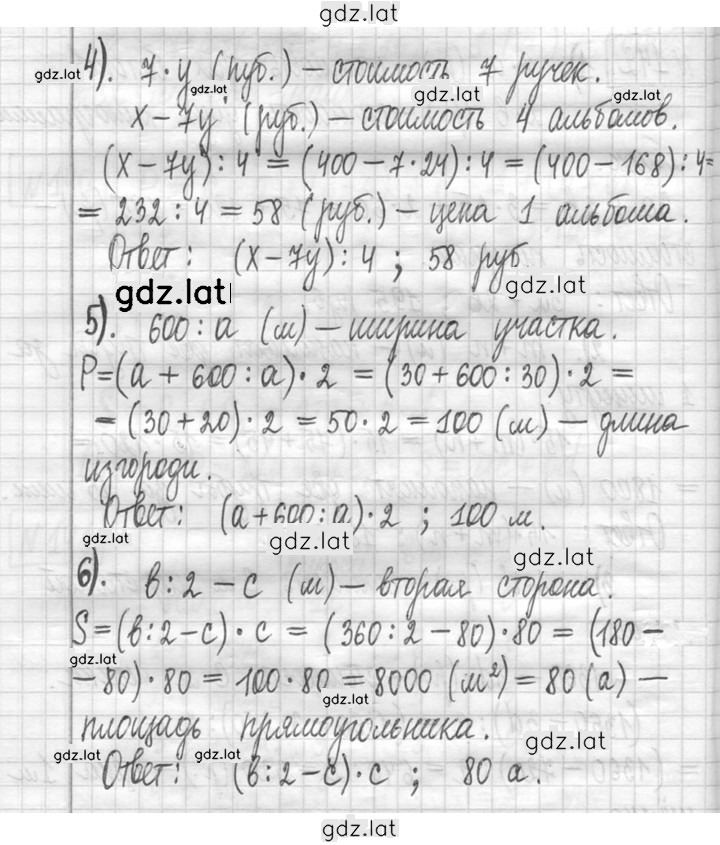 gdz.lat
gdz.lat 4). 7 · y (руб.) – стоимость 7 ручек.
gdz.lat gdz.lat
x – 7y (руб.) – стоимость 4 альбомов.
(x – 7y) : 4 = (400 – 7 · 24) : 4 = (400 – 168) : 4 =
= 232 : 4 = 58 (руб.) – цена 1 альбома.
Ответ: (x – 7y) : 4 ; 58 руб.
gdz.lat gdz.lat
5). 600 : a (м) – ширина участка.
P = (a + 600 : a) · 2 = (30 + 600 : 30) · 2 =
= (30 + 20) · 2 = 50 · 2 = 100 (м) – длина
изгороди.
Ответ: (a + 600 : a) · 2 ; 100 м.
gdz.lat gdz.lat gdz.lat
6). в : 2 – с (м) – вторая сторона.
S = (в : 2 – с) · с = (360 : 2 – 80) · 80 = (180 –
gdz.lat
– 80) · 80 = 100 · 80 = 8000 (м²) = 80 (а) –
gdz.lat
площадь прямоугольника.
gdz.lat gdz.lat gdz.lat
Ответ: (в : 2 – с) · с ; 80 а.
gdz.lat